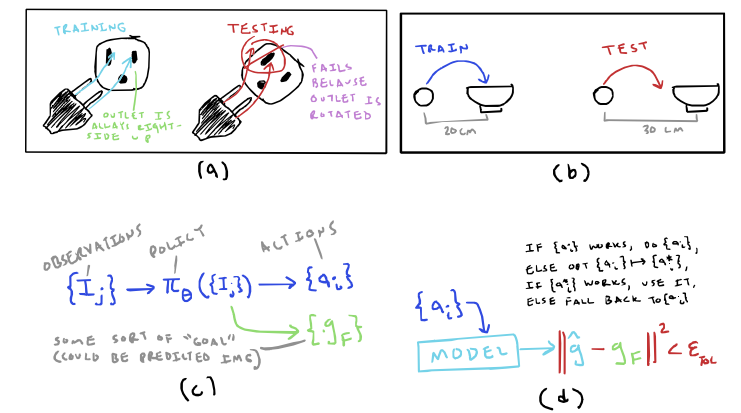 TRAINING
OUTLET IS
ALLAYS RIGHT-
SIDE UP
TESTING
FAILS
BELAUSE
OUTLET IS
ROTATED
(a)
TRAIN
20CM
TEST
30 LM
(b)
OBSERVATIONS
POLICY
ACTIONS
{I_j} → π_θ({I_j}) → {a_i}
{g_F}
SOME SORT OF "GOAL"
(COULD BE PREDILTED IMG)
(c)
IF {a_i} WORKS, DO {a_i},
ELSE OPT {a_i} ↦ {a_i^*},
IF {a_i^*} WORKS, USE IT,
ELSE FALL BACK TO {a_i}
{a_i}
MODEL → ||ĝ - g_F||² < ε_TOL
(d)